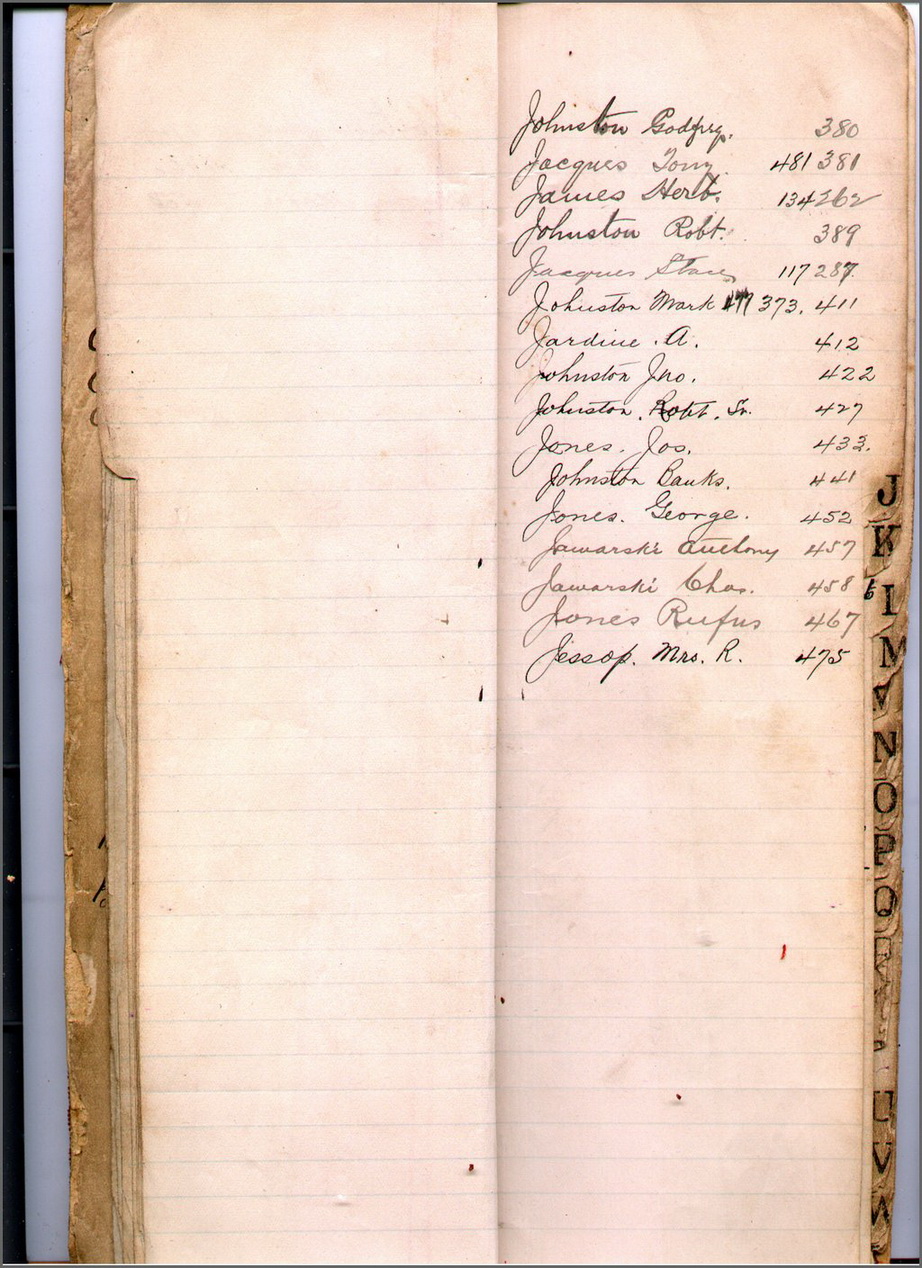 Johnston Godfrey. 380
Jacques Tony 481 381
James Herb. 134 262
Johnston Robt. 389
Jacques 117 287.
Johnston Mark 373. 411
Jardine . A. 412
Johnston Jno. 422
Johnston . Robt . Sr. 427
Jones . Jos. 433.
Johnston Banks. 441
Jones. George. 452
Jawarski Anthony 457
Jawarski Chas. 458
Jones Rufus 467
Jessop. Mrs. R. 475
J
K
L
M
N
O
P
Q
U
V